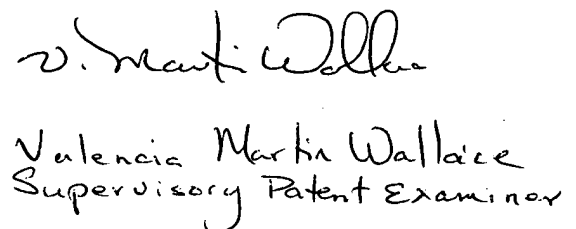 V. Martin Wallace
Valencia Martin Wallace
Supervisory Patent Examiner